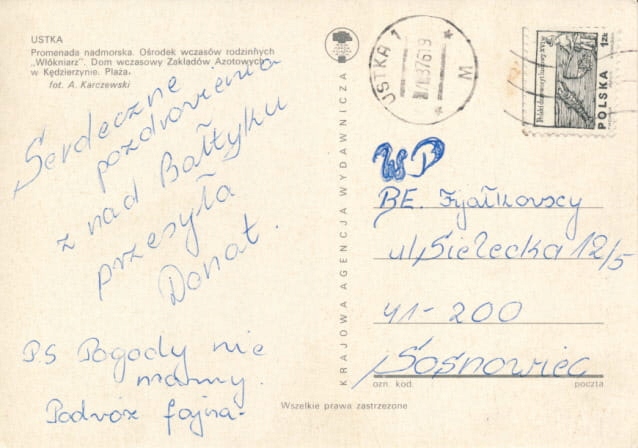 USTKA
Promenada nadmorska. Ośrodek wczasów rodzinnych
„Włókniarz”. Dom wczasowy Zakładów Azotowych
w Kędzierzynie. Plaża.
fot. A. Karczewski
Serdeczne
pozdrowienia
z nad Bałtyku
przesyła
Donat.
P.S Pogody nie
mamy.
Podróż fajna.
KRAJOWA AGENCJA WYDAWNICZA
USTKA 1
M
POLSKA
1zł
WP
BE. Fijałkowscy
ul Sielecka 12/5
41-200
Sosnowiec
ozn. kod.
poczta
Wszelkie prawa zastrzeżone